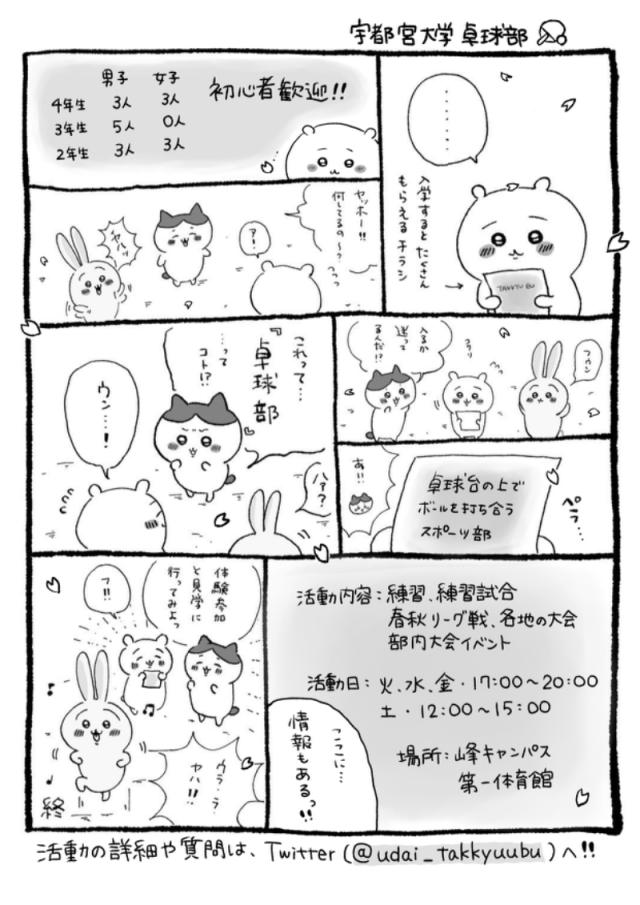 宇都宮大学 卓球部
‥‥‥‥
入学するとたくさん
もらえるチラシ
TAKKYU BU
男子 女子
4年生 3人 3人
3年生 5人 0人
2年生 3人 3人
初心者歓迎!!
ヤッホー!!
何してるの〜?
ア!
ヤハッ
入るか
迷って
るんだ!?
フウン
これって…
『卓球部
…って
コト!?
ウン…!
ハァ?
あ!!
卓球台の上で
ボールを打ち合う
スポーツ部
ペラ…
体験参加
と見学に
行ってみよっ
フ!!
ウラ・ラ
ヤハ!!
終
活動内容:練習、練習試合
春秋リーグ戦、各地の大会
部内大会イベント
活動日:火、水、金・17:00〜20:00
土・12:00〜15:00
場所:山峰キャンパス
第一体育館
ここに…
情報もあるっ!!
活動の詳細や質問は、Twitter(@udai_takkyuubu)へ!!